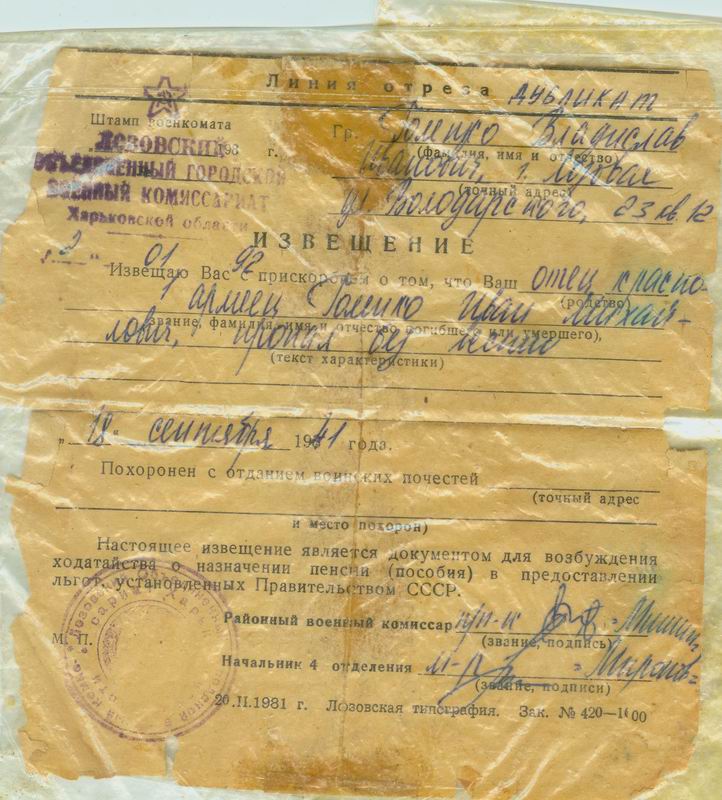 Линия отреза
ДУБЛИКАТ
Штамп военкомата
198 г.
ЛОЗОВСКИЙ
ОБЪЕДИНЕННЫЙ ГОРОДСКОЙ
ВОЕННЫЙ КОМИССАРИАТ
Харьковской области
Гр. Гоменко Владислав
(фамилия, имя и отчество)
Иванович, г.
(точный адрес)
ул Володарского, 23 кв. 12
ИЗВЕЩЕНИЕ
„2" 01 92
Извещаю Вас с прискорбием о том, что Ваш отец красно-
(родство)
армеец Гоменко Иван Михай-
(звание, фамилия, имя и отчество погибшего или умершего),
лович, пропал без вести
(текст характеристики)
„18" сентября 1941 года.
Похоронен с отданием воинских почестей
(точный адрес
и место похорон)
Настоящее извещение является документом для возбуждения
ходатайства о назначении пенсии (пособия) в предоставлении
льгот, установленных Правительством СССР.
Районный военный комиссар п/п-к
(звание, подпись)
М. П.
Начальник 4 отделения м-р
(звание, подписи)
20.II.1981 г. Лозовская типография. Зак. № 420—1600